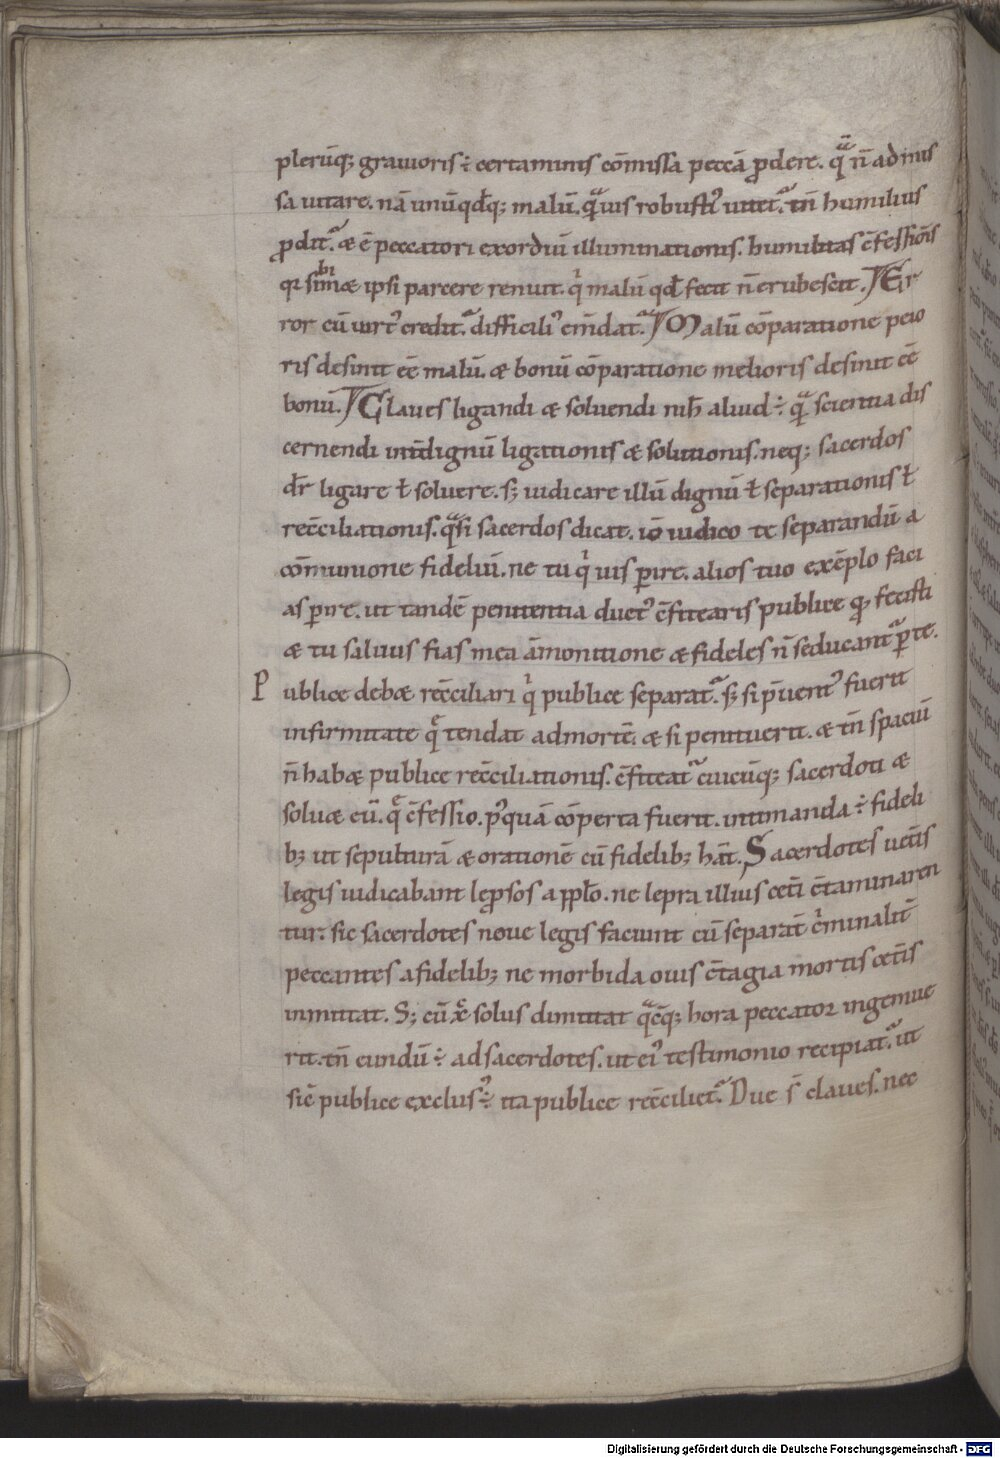 plerūq; grauioris ÷ certaminis cōmissa peccā ꝓdere. q̄ᵃ n̄ admis
sa uitare. nā unūqđq; malū. qᵃuis robusti᾿ uitet᷑. tn̄ humilius
ꝓdit᷑. & ē peccatori exordiū illuminationis. humilitas ɔ̄fessiōis
qꝛ sibimæ ipsi parcere renuit. qⁱ malū qđ fecit n̄ erubescit. Er
ror cū uirt᾿ credit᷑. difficili᾿ em̄dat᷑. Malū cōparatione peio
ris desinit eē malū. & bonū cōparatione melioris desinit eē
bonū. Claues ligandi & soluendi nih̄ aliud ÷. qᵃ scientia dis
cernendi int̄ dignū ligationis & solutionis. neq; sacerdos
dr̄ ligare ł soluere. s; iudicare illū dignū ł separationis ł
recc̄iliationis. qᵃsi sacerdos dicat. iō iudico te separandū a
cōmunione fideliū. ne tu qⁱ uis ꝑire. alios tuo exēplo faci
as ꝑire. ut tandē penitentia duct᾿ ɔ̄fitearis publice qđ fecisti
& tu saluus fias mea āmonitione & fideles n̄ seducant᷑ ꝑ te.
Publice debæ recc̄iliari qⁱ publice separat᷑. s; si p̄uent᾿ fuerit
infirmitate q̄ tendat ad mortē. & si penituerit. & tn̄ spaciū
n̄ habæ publice recc̄iliationis. ɔ̄fiteat᷑ cuicūq; sacerdoti &
soluæ eū. q̄ ɔ̄fessio. p᾿quā cōperta fuerit. intimanda ÷ fideli
b; ut sepulturā & orationē cū fidelib; hāt. Sacerdotes uet̄is
legis iudicabant leꝓsos a pp̄lo. ne lepra illius cet̄i ɔ̄taminaren
tur. sic sacerdotes noue legis faciunt cū separāt cⁱminalit̄
peccantes a fidelib; ne morbida ouis ɔ̄tagia mortis cet̄is
inmittat. S; cū xp̄c solus dimittat qᵃcūq; hora peccator ingemue
rit. tn̄ eundū ÷ ad sacerdotes. ut ei᾿ testimonio recipiat᷑. ut
sic̄ publice exclus᾿ ÷. ita publice recc̄iliet᷑. Due s̄ claues. nec